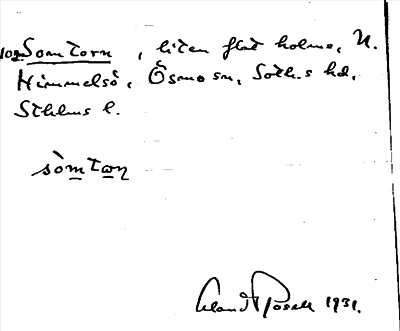 102 Somtorn, liten flat holme, N.
Himmelsö, Ösmo sn, Soth.s hd,
Sthlms l.
sòmton
1931.